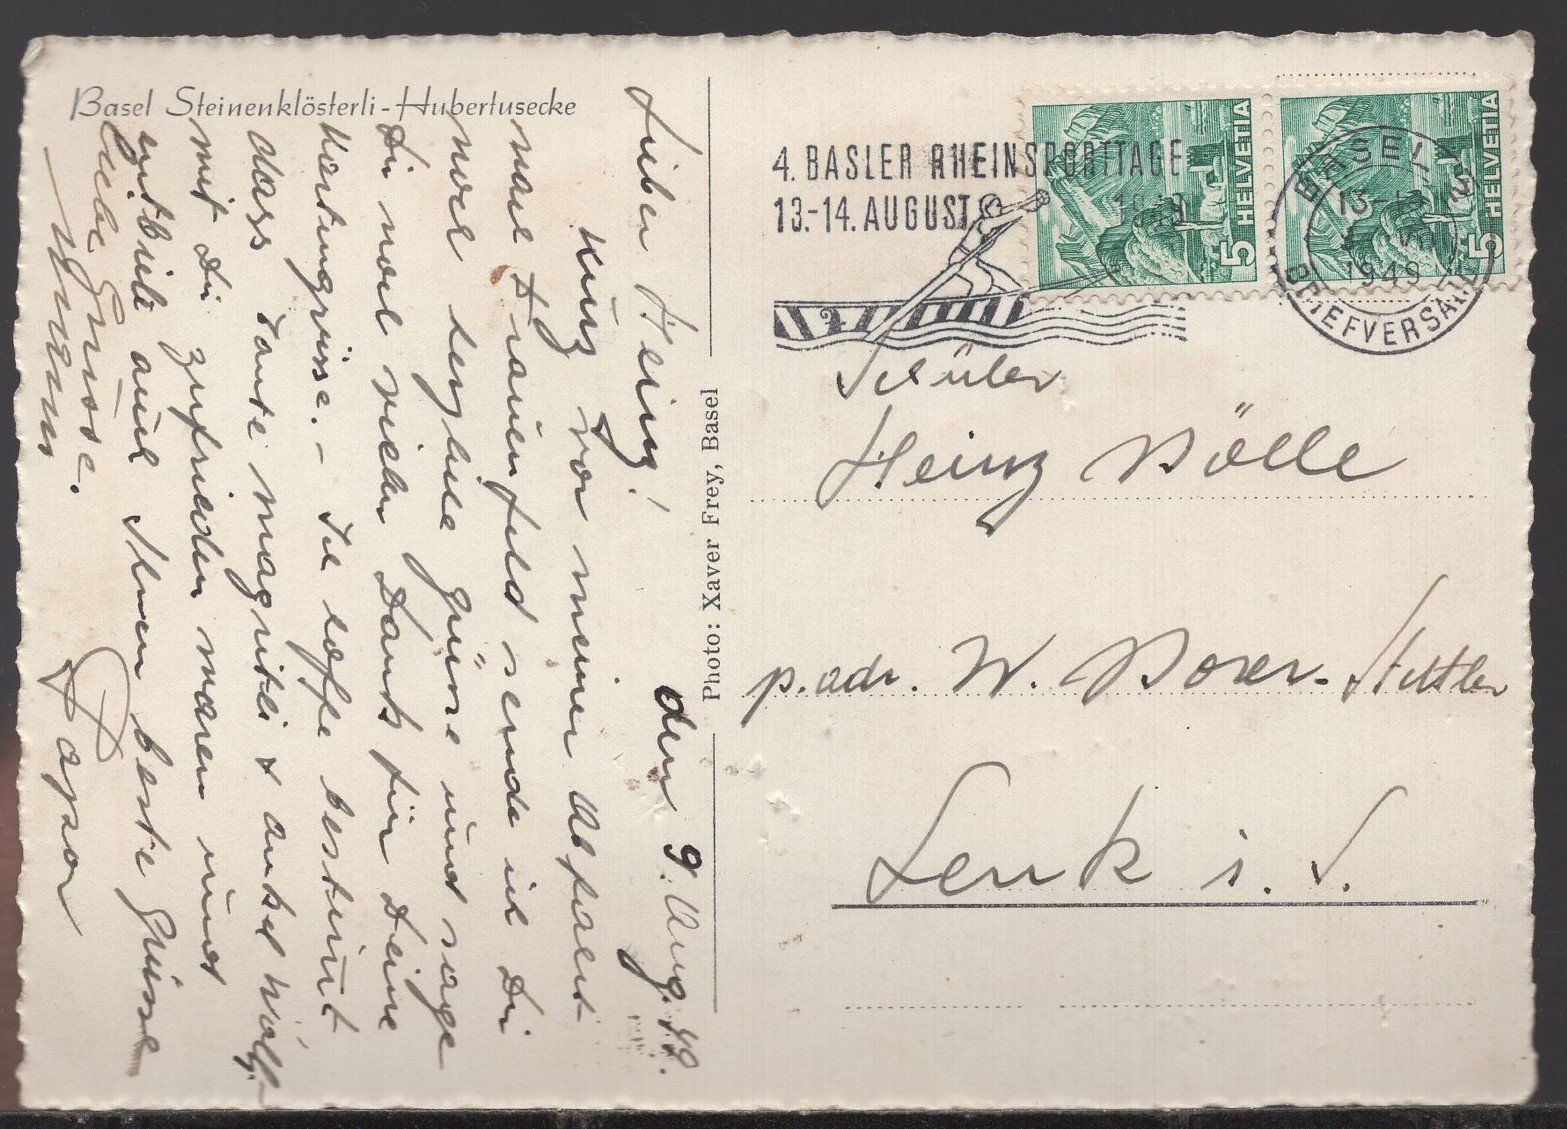 Basel Steinenklösterli-Hubertusecke
den 9. Aug. 49.
Lieber Heinz!
Kurz vor meiner Abfahrt
nach Frauenfeld sende ich Dir
noch herzliche Grüsse und sage
Dir noch vielen Dank für Deine
Kartengrüsse. - Ich hoffe bestimmt
dass Tante Magritli & Onkel Wolf
mit Dir zufrieden waren und
entbiete auch Ihnen beste Grüsse
Liebe Grüsse.
Papa
Mama
Photo: Xaver Frey, Basel
4. BASLER RHEINSPORTTAGE
13.-14. AUGUST 1949
HELVETIA 5
HELVETIA 5
BASEL 2
1949
BRIEFVERSAND
Schüler
Heinz Bölle
p. adr. W. Boxer-Stettler
Lenk i. S.